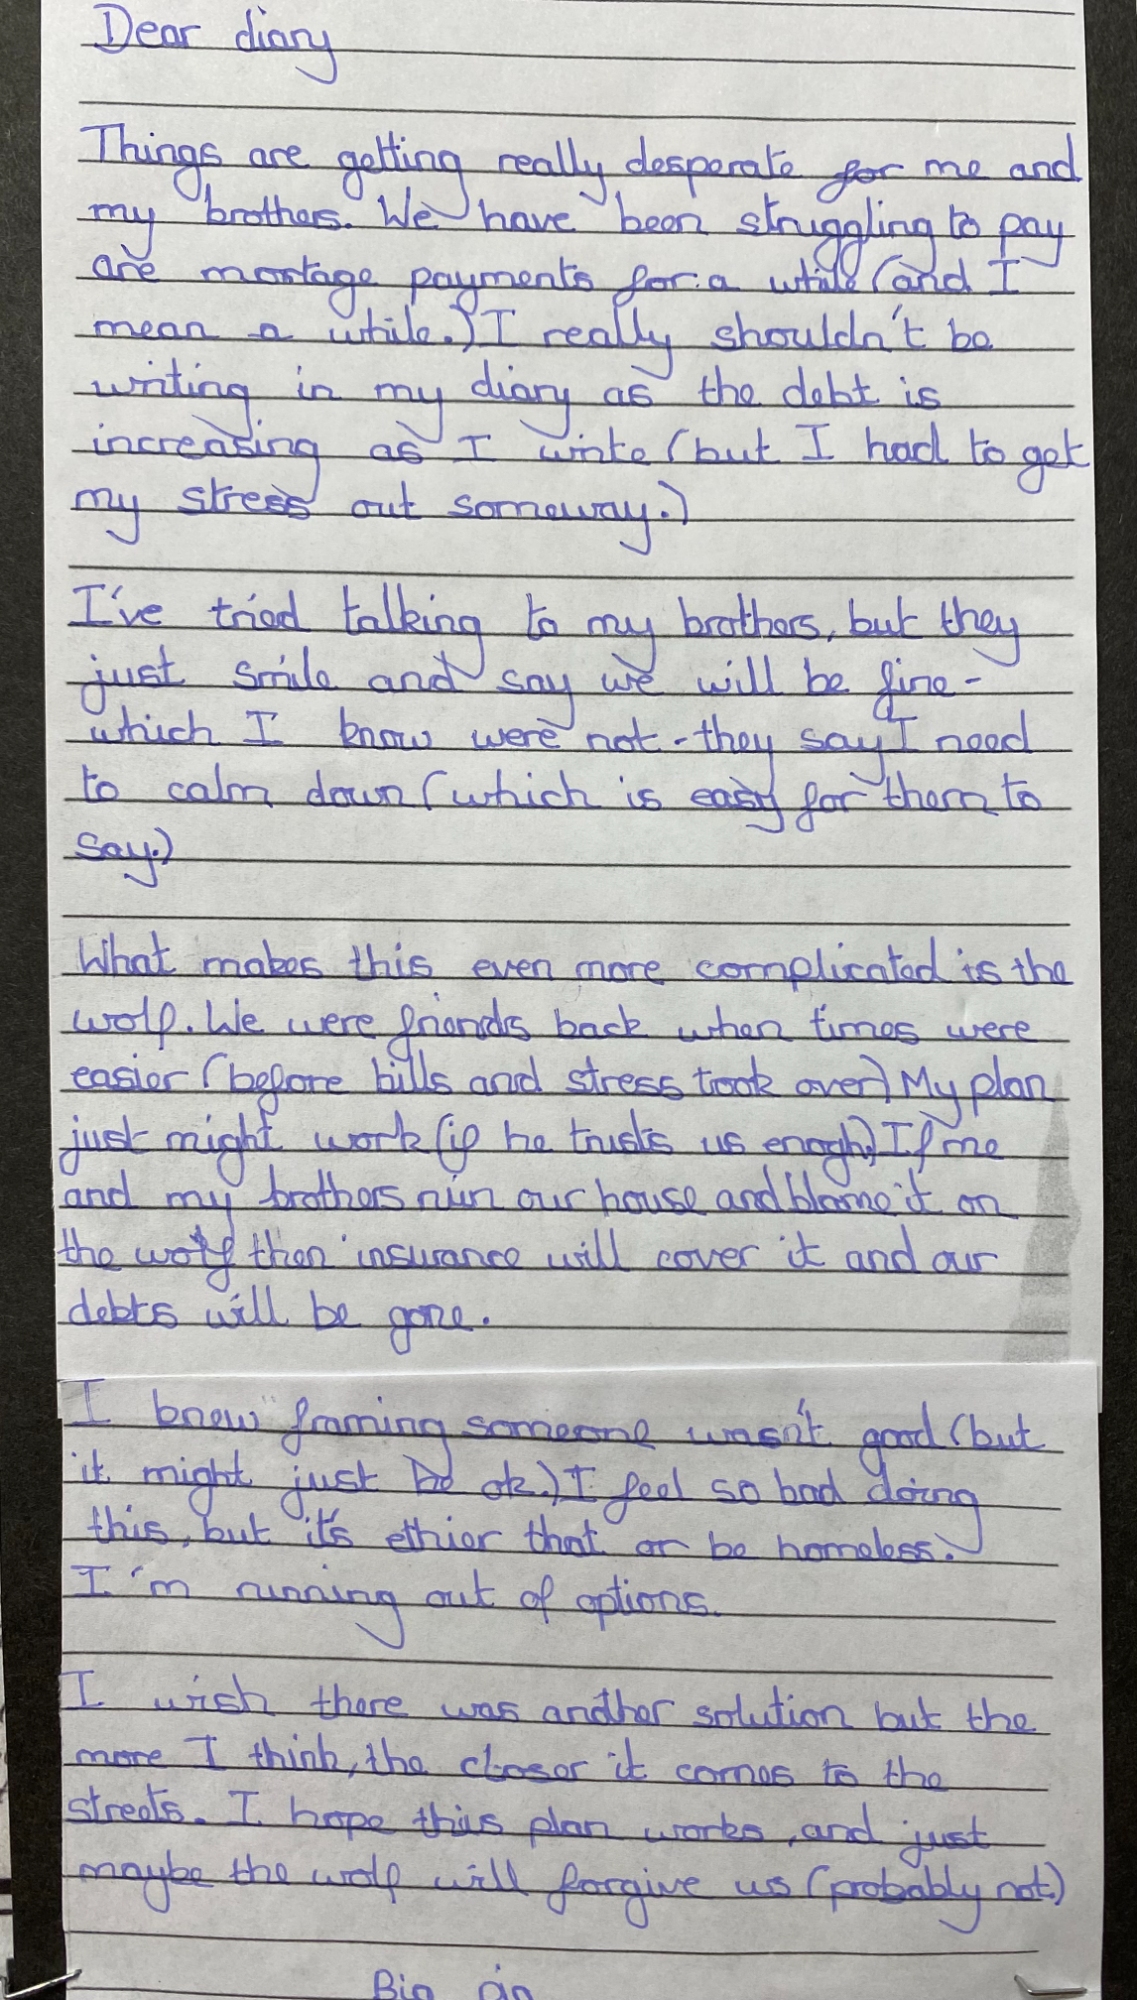 Dear diary
Things are getting really desperate for me and
my brothers. We have been struggling to pay
are mortage payments for a while (and I
mean a while.) I really shouldn't be
writing in my diary as the debt is
increasing as I write (but I had to get
my stress out someway.)
I've tried talking to my brothers, but they
just smile and say we will be fine -
which I know were not - they say I need
to calm down (which is easy for them to
say.)
What makes this even more complicated is the
wolf. We were friends back when times were
easier (before bills and stress took over) My plan
just might work (if he trusts us enogh.) If me
and my brothers ruin our house and blame it on
the wolf then insurance will cover it and our
debts will be gone.
I knew framing someone wasn't good (but
it might just be ok.) I feel so bad doing
this, but it's ethier that or be homeless.
I'm running out of options.
I wish there was another solution but the
more I think, the closer it comes to the
streets. I hope this plan works, and just
maybe the wolf will forgive us (probably not.)